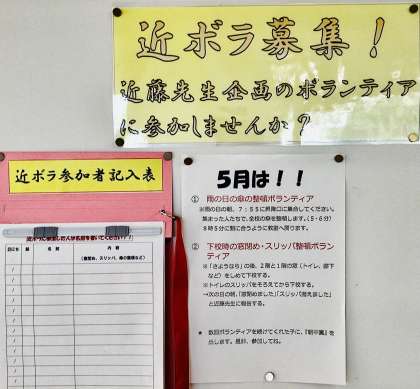 近ボラ募集!
近藤先生企画のボランティア
に参加しませんか?
近ボラ参加者記入表
5月は!!
① 雨の日の傘の整頓ボランティア
※雨の日の朝、7:55に昇降口に集合してください。
集まった人たちで、全校の傘を整頓します。(5・6分)
8時5分に間に合うように教室へ戻ります。
② 下校時の窓閉め・スリッパ整頓ボラン
ティア
※「さようなら」の後、2階と1階の窓(トイレ、廊下
など)をしめて下校する。
※トイレのスリッパをそろえてから下校する。
→次の日の朝、「窓閉めました」「スリッパ揃えました」
と近藤先生に報告する。
★ 数回ボランティアを続けてくれた子に、『朝中賞』を
出します。是非、参加してね。
名前
内容